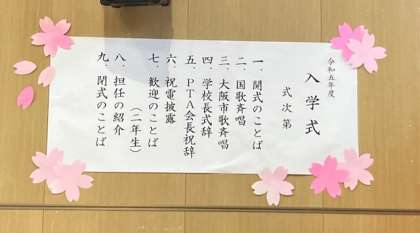 令和五年度
入学式
式次第
一、開式のことば
二、国歌斉唱
三、大阪市歌斉唱
四、学校長式辞
五、PTA会長祝辞
六、祝電披露
七、歓迎のことば
（二年生）
八、担任の紹介
九、閉式のことば